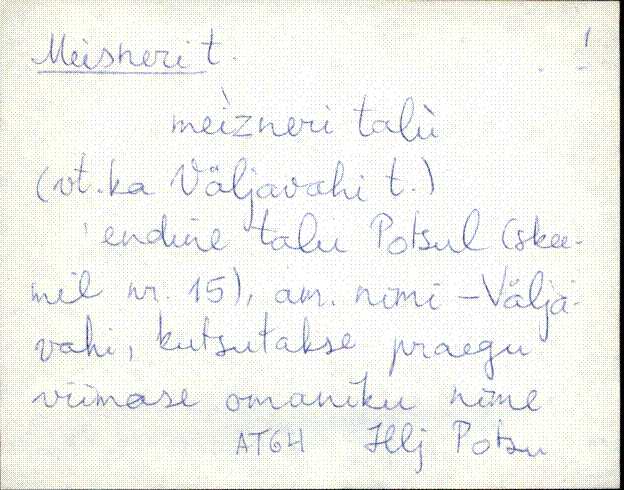 Meisneri t. 1
meìzneri talù
(vt. ka Väljavahi t.)
endine talu Potsul (skee-
mil nr. 15), am. nimi - Välja-
vahi, kutsutakse praegu
viimase omaniku nime
AT64 Hlj Potsu